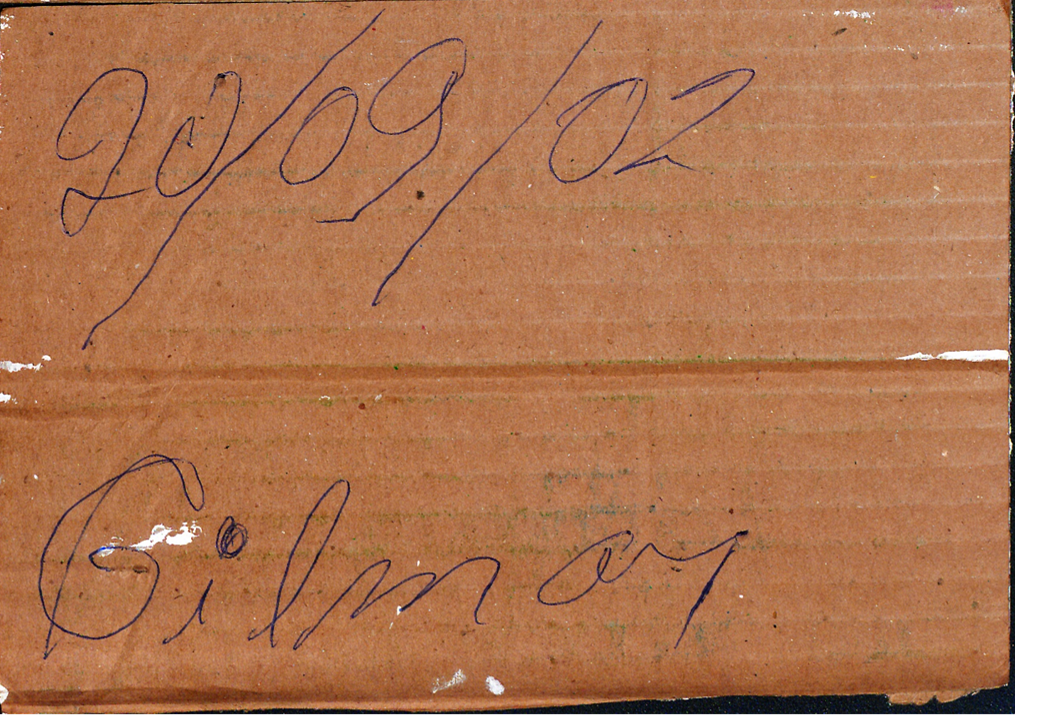 20/09/02
Gilmar